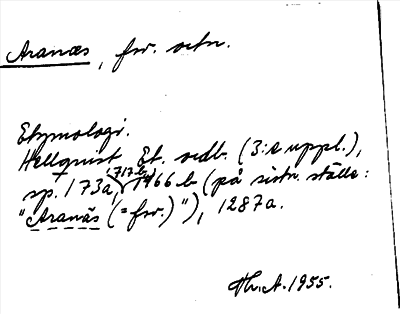 Aranæs, fsv. ortn.
Etymologi.
Hellquist Et. ordb. (3:e uppl.),
717 b,
sp. 173a, 1466 b (på sistn. ställe:
"Aranäs (= fsv.)"), 1287a.
Hr. A. 1955.